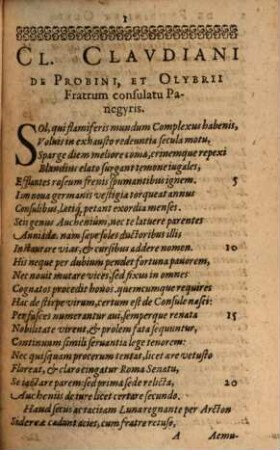 1
CL. CLAVDIANI
DE PROBINI, ET OLYBRII
Fratrum consulatu Pa-
negyris.
SOl, qui flamiferis mundum Complexus habenis,
Voluis inexhausto redeuntia secula motu,
Sparge diem meliore coma, crinemque repexi
Blandius elato surgant temone iugales,
Efflantes roseum frenis spumantibus ignem. 5
Iam noua germanis vestigia torqueat annus
Consulibus, lætiq; petant exordia menses.
Scis genus Auchenium, nec te latuere parentes
Anniadæ. nam sæpe soles ductoribus illis
Instaurare vias, & cursibus addere nomen. 10
His neque per dubium pendet fortuna fauorem,
Nec nouit mutare vices, sed fixus in omnes
Cognatos procedit honos. quemcumque requires
Hac de stirpe virum, certum est de Consule nasci:
Per fasces numerantur aui, semperque renata 15
Nobilitate virent, & prolem fata sequuntur,
Continuum simili seruantia lege tenorem:
Nec quisquam procerum tentat, licet ære vetusto
Floreat, & claro cingatur Roma Senatu,
Se iactare parem: sed prima sede relicta, 20
Aucheniis de iure licet certare secundo.
Haud secus ac tacitam Luna regnante per Arcton
Sidereæ cedunt acies, cum fratre retuso,
A Aemu-